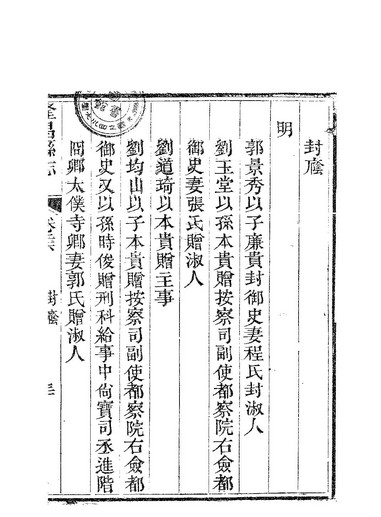 封廕
明
郭景秀以子廉貴封御史妻程氏封淑人
劉玉堂以孫本貴贈按察司副使都察院右僉都
御史妻張氏贈淑人
劉道琦以本貴贈主事
劉均山以子本貴贈按察司副使都察院右僉都
御史又以孫時俊贈刑科給事中尚寶司丞進階
冏卿太僕寺卿妻郭氏贈淑人
昌縣志
封廕